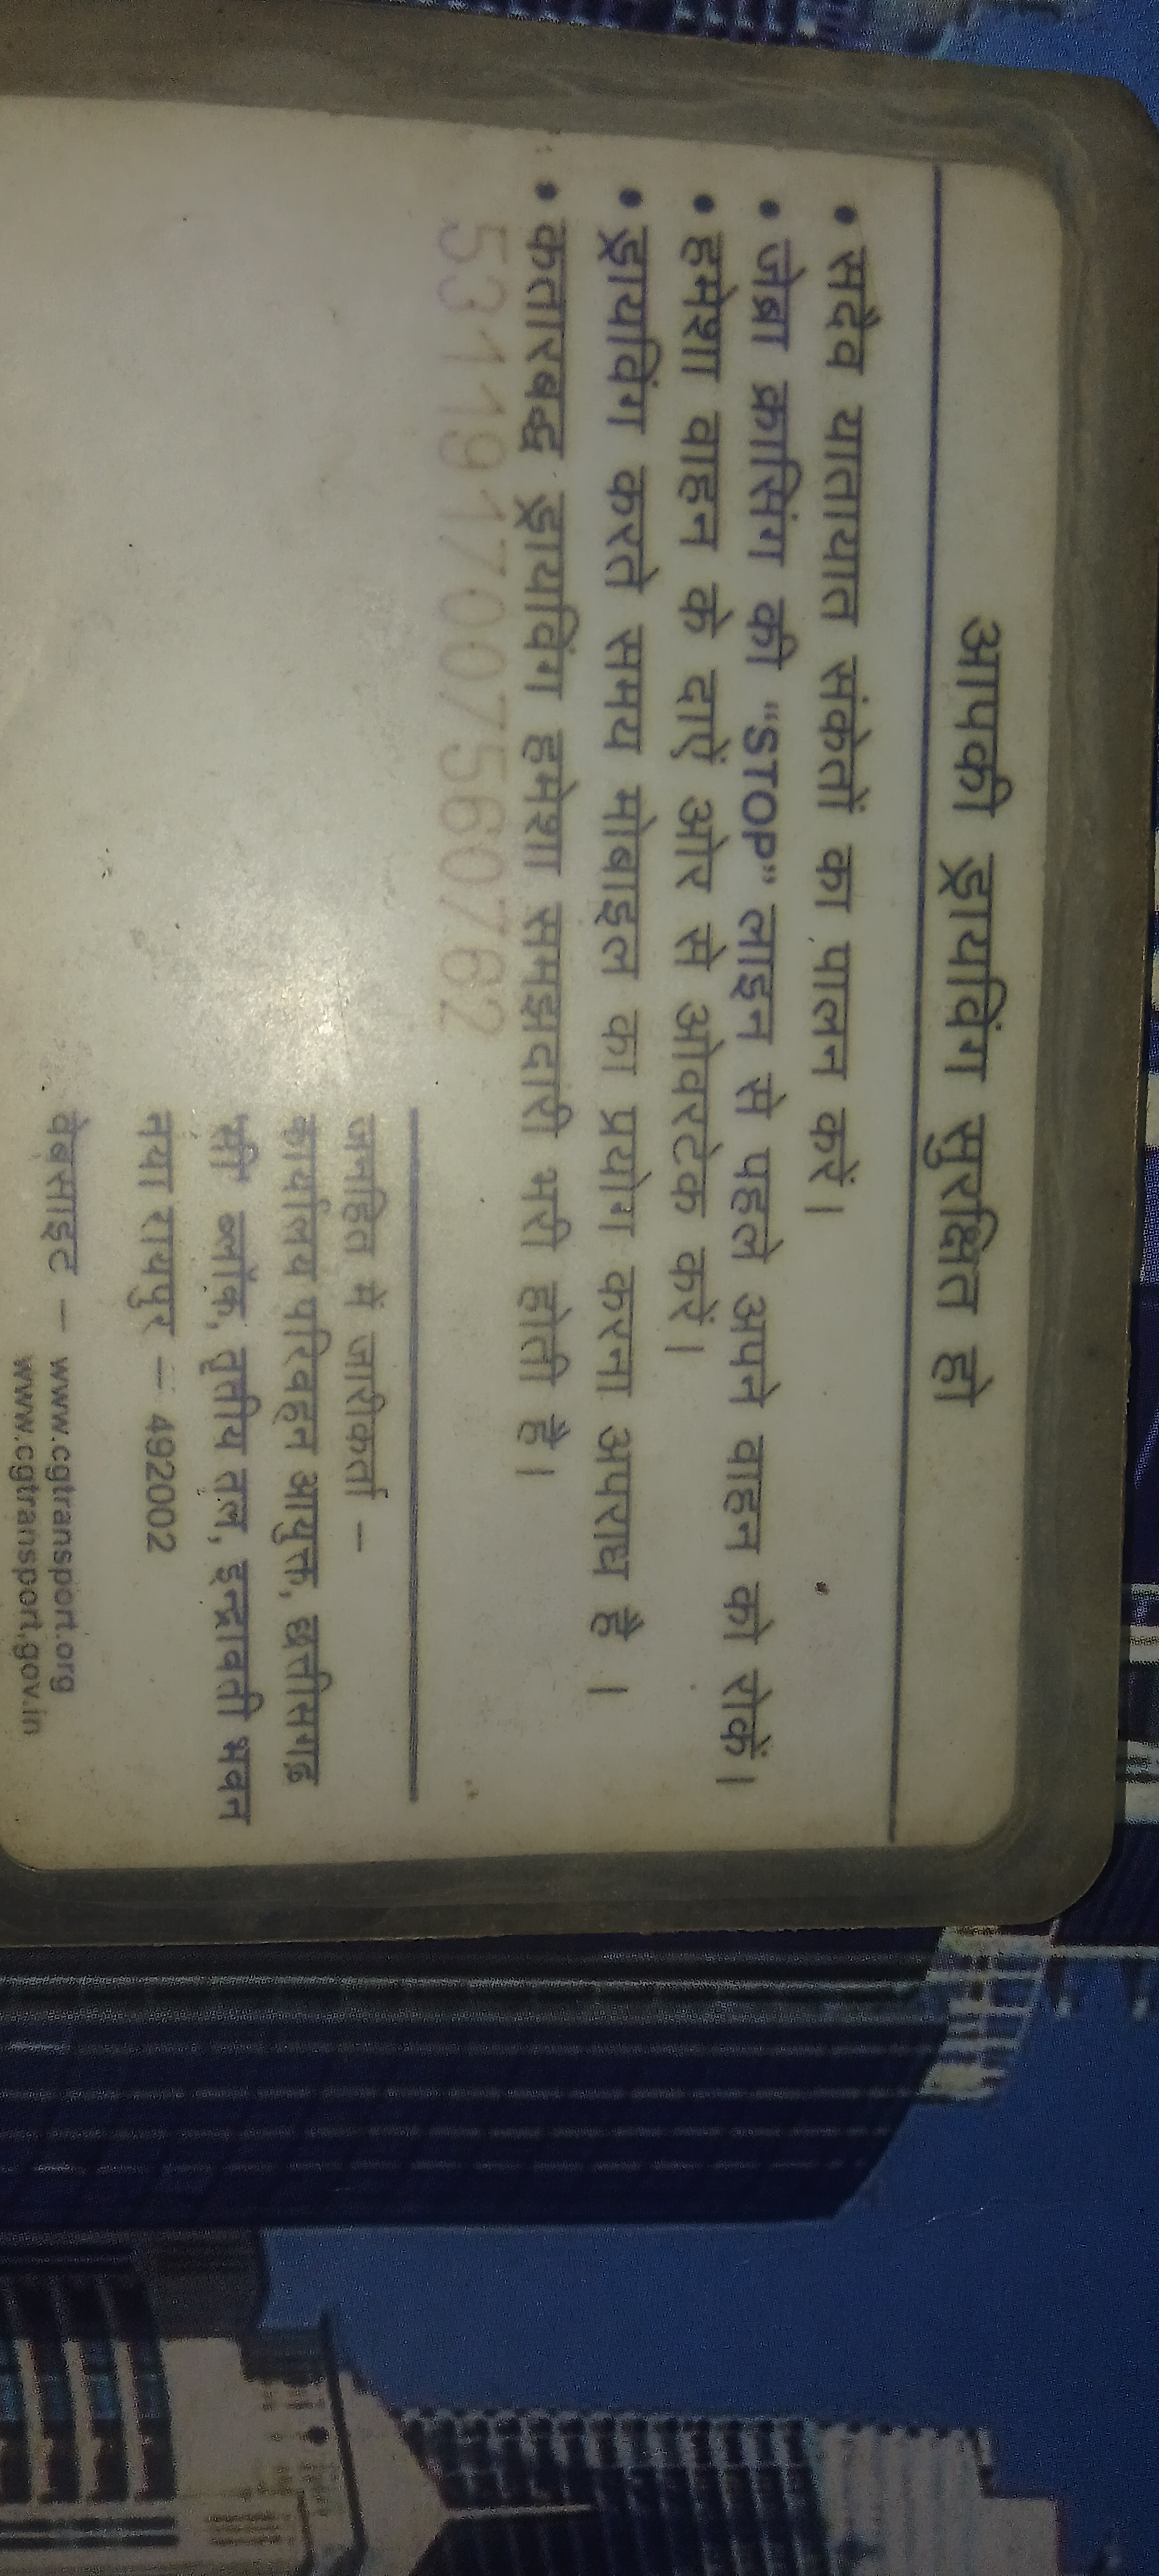 आपकी ड्रायविंग सुरक्षित हो
• सदैव यातायात संकेतों का पालन करें।
• जेब्रा क्रासिंग की "STOP" लाइन से पहले अपने वाहन को रोकें।
• हमेशा वाहन के दाऐं ओर से ओवरटेक करें।
• ड्रायविंग करते समय मोबाइल का प्रयोग करना अपराध है ।
• कतारबद्ध ड्रायविंग हमेशा समझदारी भरी होती है।
5311917007560762
जनहित में जारीकर्ता –
कार्यालय परिवहन आयुक्त, छत्तीसगढ़
सी ब्लॉक, तृतीय तल, इन्द्रावती भवन
नया रायपुर – 492002
वेबसाइट – www.cgtransport.org
www.cgtransport.gov.in